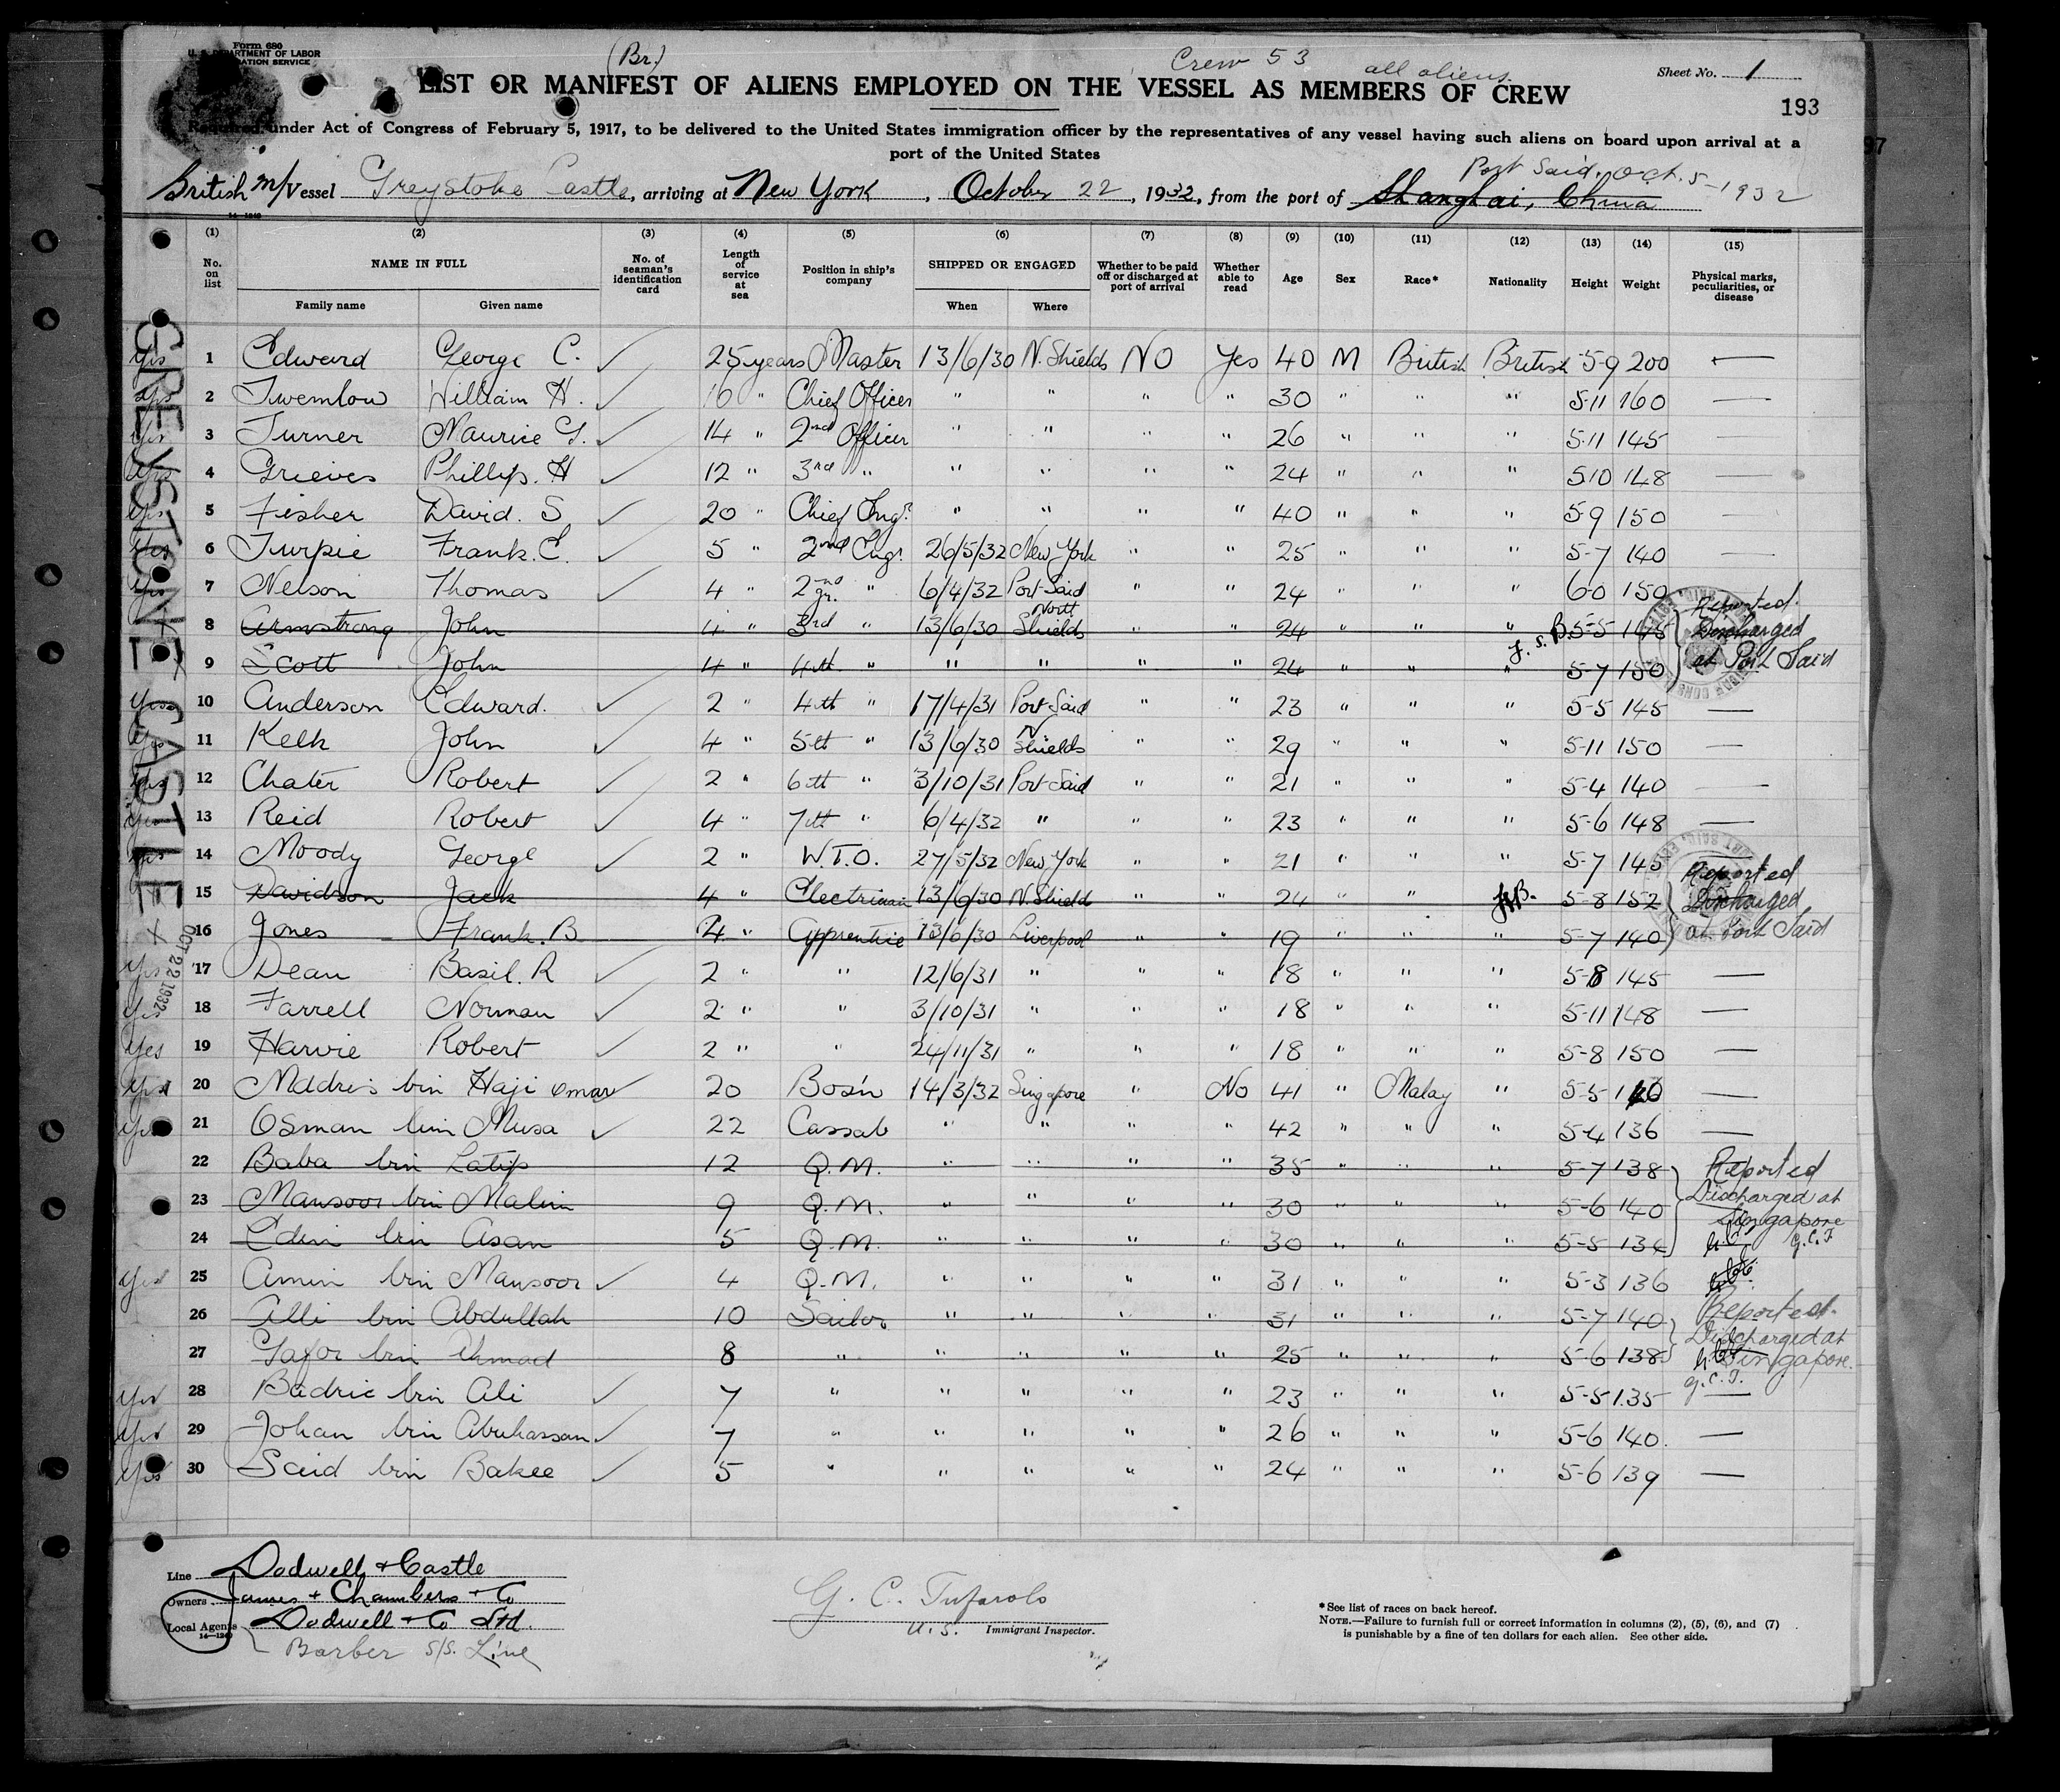 Form 680
U. S. DEPARTMENT OF LABOR
(Br.) Crew 53 all aliens
Sheet No. 1
LIST OR MANIFEST OF ALIENS EMPLOYED ON THE VESSEL AS MEMBERS OF CREW
193
Required under Act of Congress of February 5, 1917, to be delivered to the United States immigration officer by the representatives of any vessel having such aliens on board upon arrival at a
port of the United States
Port Said, Oct. 5-1932
British m/Vessel Greystoke Castle, arriving at New York, October 22, 1932, from the port of Shanghai, China
(1) (2) (3) (4) (5) (6) (7) (8) (9) (10) (11) (12) (13) (14) (15)
No. on list NAME IN FULL No. of seaman's identification card Length of service at sea Position in ship's company SHIPPED OR ENGAGED Whether to be paid off or discharged at port of arrival Whether able to read Age Sex Race* Nationality Height Weight Physical marks, peculiarities, or disease
Family name Given name When Where
GREYSTONE CASTLE
OCT 22 1932
Yes 1 Edward George C. ✓ 25 years Master 13/6/30 N. Shields NO Yes 40 M British British 5-9 200 —
Yes 2 Twemlow William H. ✓ 16 " Chief Officer " " " " 30 " " " 5-11 160 —
Yes 3 Turner Maurice G. ✓ 14 " 2nd Officer " " " " 26 " " " 5-11 145 —
Yes 4 Grieves Phillip. H ✓ 12 " 3rd " " " " " 24 " " " 5-10 148 —
Yes 5 Fisher David. S ✓ 20 " Chief Engr. " " " " 40 " " " 5-9 150 —
Yes 6 Turpie Frank. E. ✓ 5 " 2nd Engr. 26/5/32 New York " " 25 " " " 5-7 140 —
Yes 7 Nelson Thomas ✓ 4 " 2nd Jr. " 6/4/32 Port Said " " 24 " " " 6-0 150
8 Armstrong John 4 " 3rd " 13/6/30 North Shields " " 24 " " " 5-5 145 Reported. Discharged
9 Scott John 4 " 4th " " " " " 24 " " " 5-7 150 at Port Said
Yes 10 Anderson Edward. ✓ 2 " 4th " 17/4/31 Port Said " " 23 " " " 5-5 145 —
Yes 11 Kelk John ✓ 4 " 5th " 13/6/30 N Shields " " 29 " " " 5-11 150 —
Yes 12 Chater Robert ✓ 2 " 6th " 3/10/31 Port Said " " 21 " " " 5-4 140 —
Yes 13 Reid Robert ✓ 4 " 7th " 6/4/32 " " " 23 " " " 5-6 148 —
Yes 14 Moody George ✓ 2 " W.T.O. 27/5/32 New York " " 21 " " " 5-7 145
15 Davidson Jack 4 " Electrician 13/6/30 N. Shield " " 24 " " 5-8 152 Reported Discharged
16 Jones Frank. B 4 " Apprentice 13/6/30 Liverpool " " 19 " " " 5-7 140 at Port Said
Yes 17 Dean Basil. R ✓ 2 " " 12/6/31 " " " 18 " " " 5-8 145 —
Yes 18 Farrell Norman ✓ 2 " " 3/10/31 " " " 18 " " " 5-11 148 —
Yes 19 Harvie Robert ✓ 2 " " 24/11/31 " " " 18 " " " 5-8 150 —
Yes 20 Mddris bin Haji Omar ✓ 20 Bos'n 14/3/32 Singapore " No 41 " Malay " 5-5 —
Yes 21 Osman bin Musa ✓ 22 Cassab " " " " 42 " " " 5-4 136 —
22 Baba bin Latip 12 Q.M. " " " " 35 " " " 5-7 138 Reported
23 Mansoor bin Malim 9 Q.M. " " " " 30 " " " 5-6 140 Discharged at
24 Edin bin Asan 5 Q.M. " " " " 30 " " " 5-5 134 Singapore G.C.T
Yes 25 Amin bin Mansoor ✓ 4 Q.M. " " " " 31 " " " 5-3 136
26 Alli bin Abdullah 10 Sailor " " " " 31 " " " 5-7 140 Reported.
27 Gafor bin Ahmad 8 " " " " " 25 " " " 5-6 138 Discharged at Singapore. G.C.T.
Yes 28 Badric bin Ali ✓ 7 " " " " " 23 " " " 5-5 135 —
Yes 29 Johan bin Abuhassan ✓ 7 " " " " " 26 " " " 5-6 140. —
Yes 30 Said bin Bakee ✓ 5 " " " " " 24 " " " 5-6 139 —
Line Dodwell & Castle
Owners James & Chambers & Co
Local Agents Dodwell & Co Ltd.
14—1240
Barber S/S. Line
G. C. Tufarolo
U.S. Immigrant Inspector.
*See list of races on back hereof.
NOTE.—Failure to furnish full or correct information in columns (2), (5), (6), and (7)
is punishable by a fine of ten dollars for each alien. See other side.